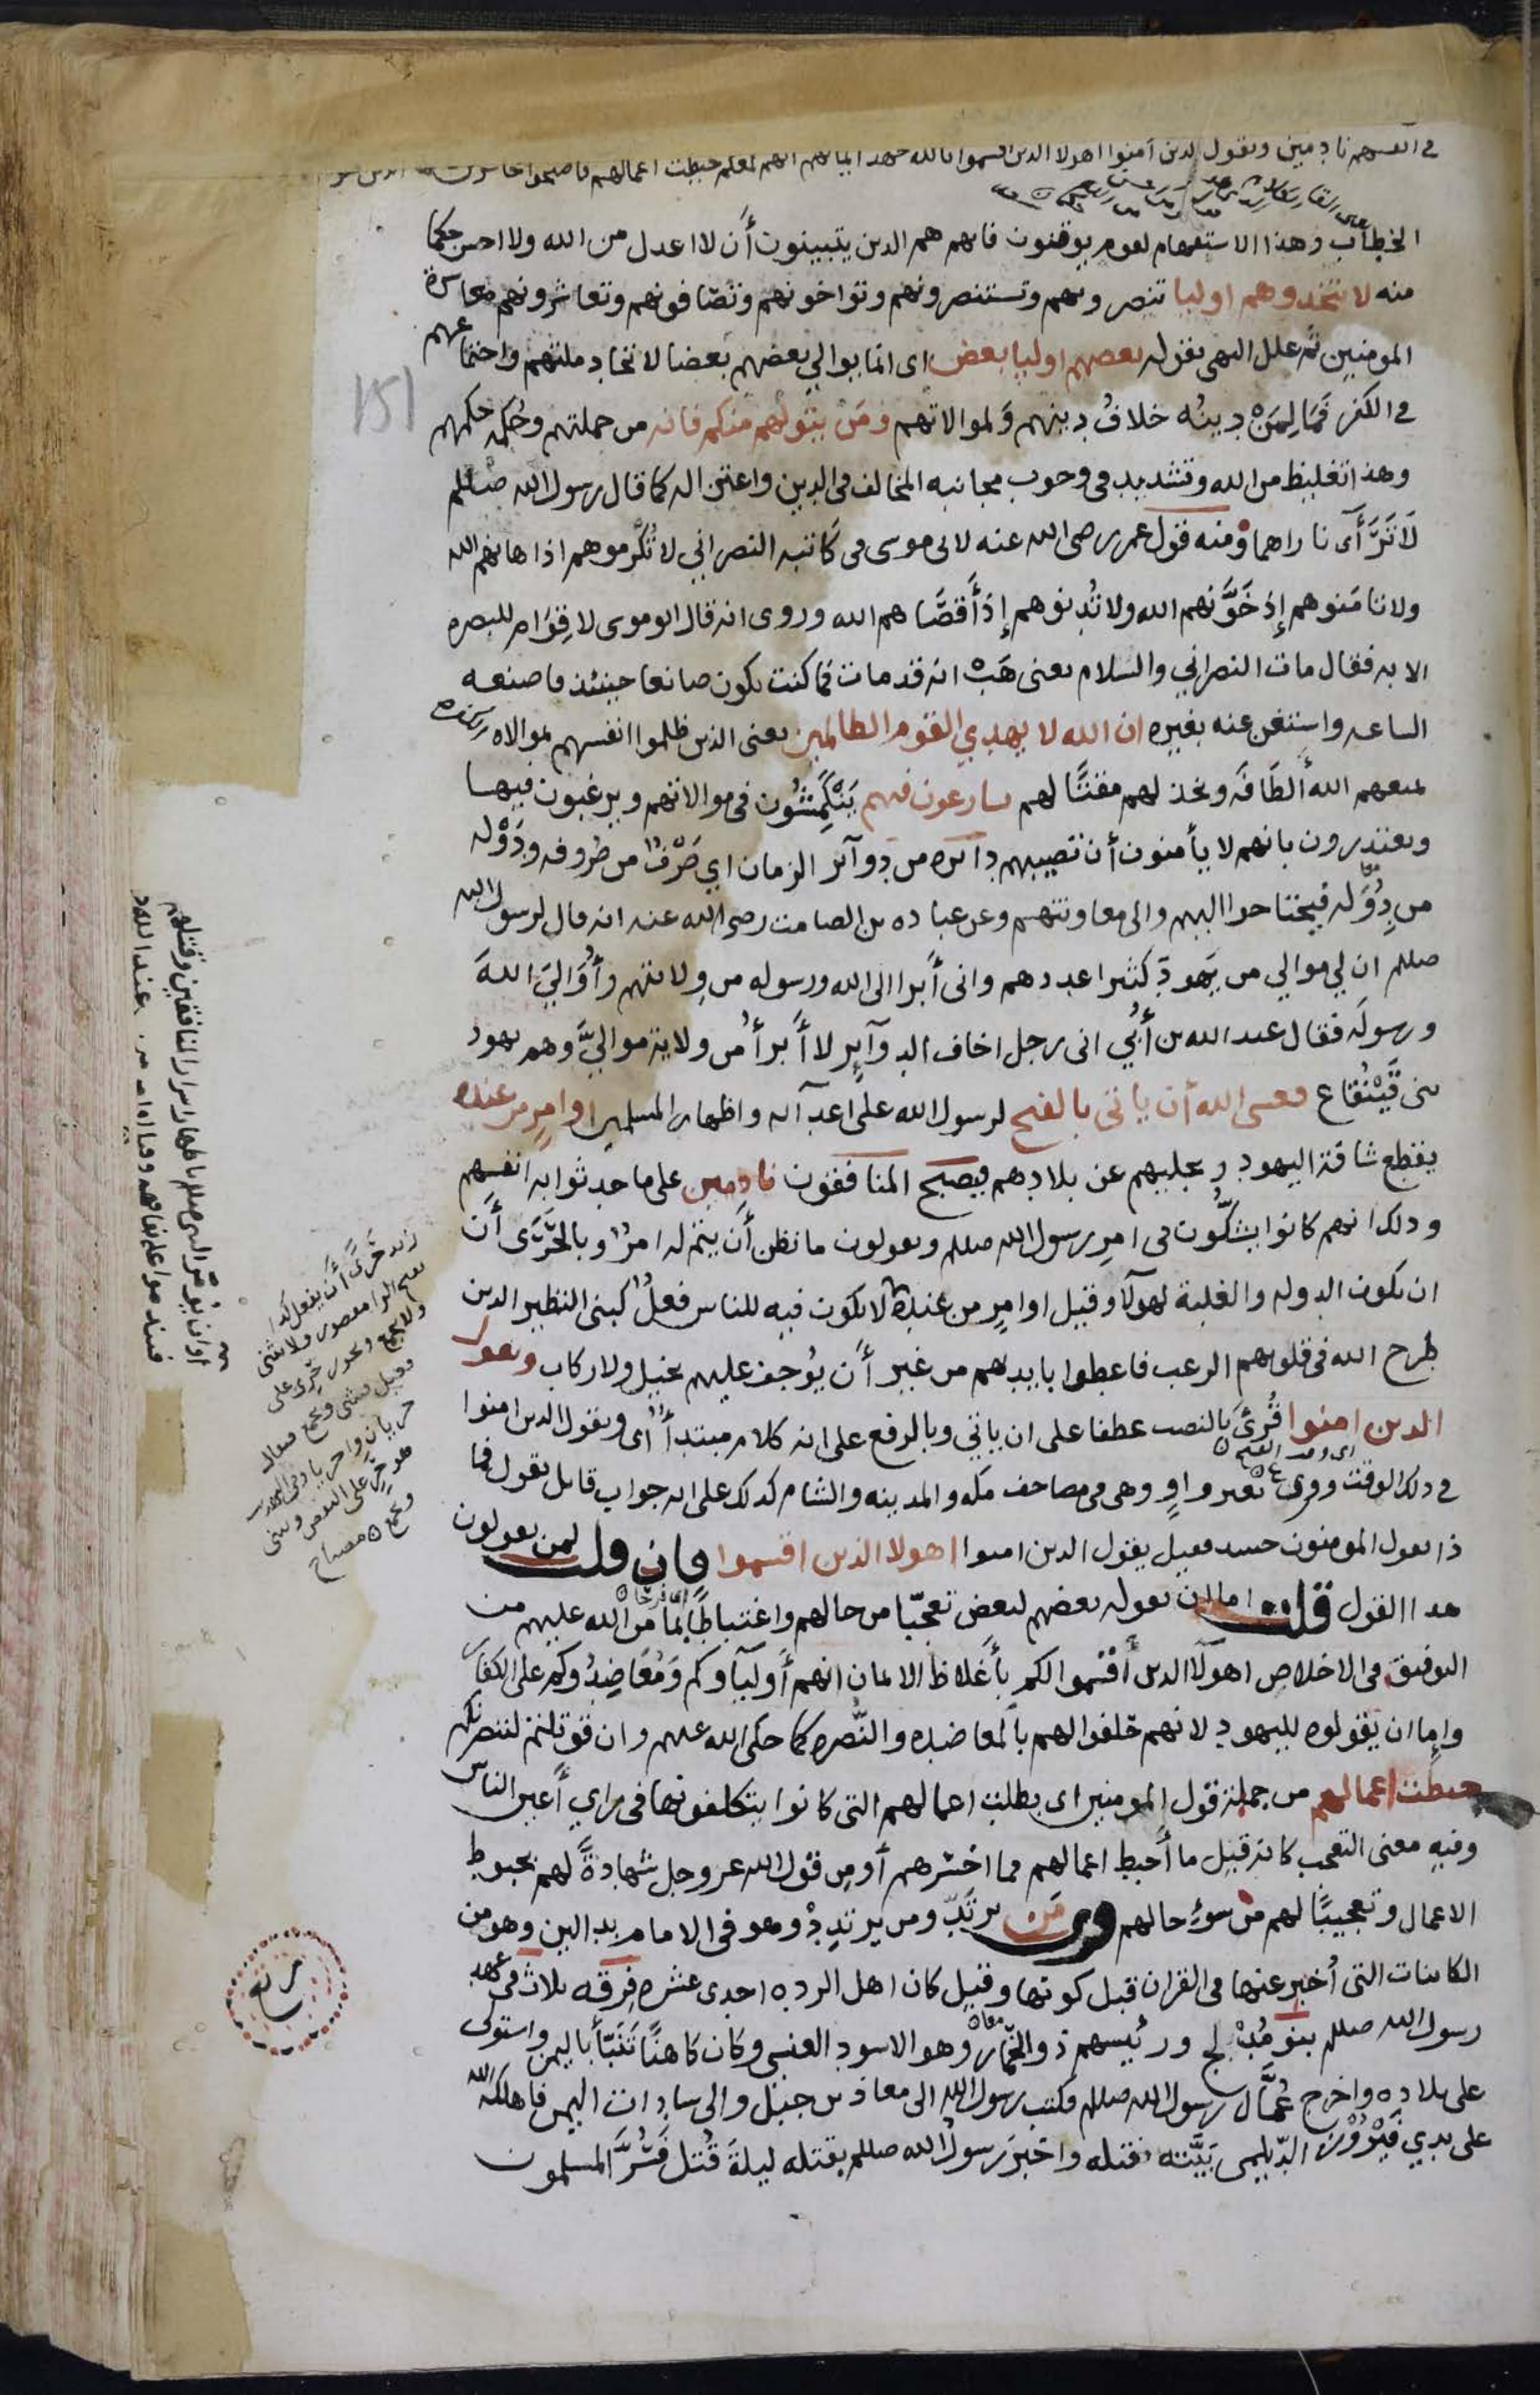 في انفسهم نادمين ويقول الذين امنوا اهولا الذين اقسموا بالله جهد ايمانهم انهم لمعكم حبطت اعمالهم فاصبحوا خاسرين
الخطاب وهذا الاستفهام لقوم يوقنون فانهم هم الذين يتبينون أن لا اعدل من الله ولا احسن حكما
منه لا تتخذوهم اوليا تنصرونهم وتستنصرونهم وتواخونهم وتصافونهم وتعاشرونهم معاشرة
المومنين ثم علل النهي بقوله بعضهم اوليا بعض اي انما يوالي بعضهم بعضا لاتحاد ملتهم واجتماعهم
في الكفر فما لِمَنْ دينُه خلافُ دينهم وَلموالاتهم ومَن يتولهم منكم فانه من جملتهم وحُكمه حكمهم
وهذا تغليظ من الله وتشديد في وجوب مجانبه المخالف في الدين واعتزاله كما قال رسول الله صللم
لَا تَرَآَى ناراهما ومنه قول عمر رضى الله عنه لابى موسى فى كاتبه النصراني لا تُكرموهم اذ اهانهم الله
ولا تامَنوهم إذ خَوَّنهم الله ولا تُدنوهم إذ أَقصَاهم الله وروى انه قال ابو موسى لا قِوَام للبصره
الا به فقال مات النصراني والسلام يعنى هَبْ انه قد مات فما كنت تكون صانعا حينئذ فاصنعه
الساعه واستغن عنه بغيره ان الله لا يهدي القوم الظالمين يعنى الذين ظلموا انفسهم بموالاه الكفره
يمنعهم الله أَلطَافَه ويخذلهم مقتًا لهم يسارعون فيهم يَنْكَمِشُون فى موالاتهم ويرغبون فيها
ويعتذرون بانهم لا يأمنون أن تصيبهم دائره من دوآئر الزمان اي صَرْفٌ من صروفه ودَوْله
من دُوَله فيحتاجوا اليهم والى معاونتهم وعن عباده بن الصامت رضى الله عنه انه قال لرسول الله
صللم ان لي موالي من يَهودَ كثيرا عددهم وانى أَبرا الى الله ورسوله من ولايتهم وأُوَالي اللهَ
ورسولَه فقال عبد الله بن أُبَي انى رجل اخاف الدوآئِر لا أَبرأُ من ولاية مواليَّ وهم يهود
بنى قَيْنُقَاع فعسى الله أن ياتى بالفتح لرسول الله على اعدآئه واظهار المسلمين او امرٍ من عنده
يقطع شافة اليهود ويجليهم عن بلادهم فيصبح المنافقون نادمين على ما حدثوا به انفسهم
وذلك انهم كانوا يشكُّون فى امرِ رسول الله صللم ويقولون ما نظن أن يتم له امرٌ وبالحَرَى أن
ان تكون الدوله والغلبة لهولآ وقيل او امرٍ من عنده لا يكون فيه للناس فعلٌ كبنى النظير الذين
طرح الله فى قلوبهم الرعب فاعطوا بايديهم من غير أن يُوجف عليهم بخيل ولا ركاب ويقول
الذين امنوا قُرِئَ بالنصب عطفا على ان ياتي وبالرفع على انه كلام مبتدأ أي ويقول الذين امنوا
في ذلك الوقت وقرى يقول بغير واوٍ وهى فى مصاحف مكه والمدينه والشام كذلك على انه جواب قائل يقول فما
ذا يقول المومنون حينئذ فقيل يقول الذين امنوا اهولا الذين اقسموا فان قلت لمن يقولون
هذا القول قلت اما ان يقوله بعضهم لبعض تعجّبا من حالهم واغتباطًا بما منّ الله عليهم من
التوفيق فى الاخلاص اهولآ الذين أقسموا لكم بأغلاظ الايمان انهم أَوليآوكم ومُعَاضِدُوكم على الكفار
وإما ان يقولوه لليهود لانهم حلفوا لهم بالمعاضده والنُّصره كما حكى الله عنهم وان قوتلتم لننصرنكم
حبطت اعمالهم من جملة قول المومنين اى بطلت اعمالهم التى كانوا يتكلفونها فى مراي أَعين الناس
وفيه معنى التعجب كانه قيل ما أَحبط اعمالهم فما اخسرهم أو من قول الله عز وجل شهادةً لهم بحبوط
الاعمال وتعجيبًا لهم من سوء حالهم وقرى مَن يرتَدّ ومن يرتدِدْ وهو فى الامام بدالين وهو من
الكاينات التى أُخبر عنها فى القران قبل كونها وقيل كان اهل الرده احدى عشره فِرقه ثلاث فى عهد
رسول الله صللم بنو مُدْلج ورئيسهم ذو الخِمَار وهو الاسود العنسى وكان كاهنًا تَنَبّأَ باليمن واستولى
على بلاده واخرج عُمَّال رسول الله صللم فكتب رسول الله الى معاذ بن جبل والى سادات اليمن فاهلكه الله
على يدي فَيْرُوْزَ الدّيلمى بَيَّته فقتله واخبرَ رسولُ الله صللم بقتله ليلةَ قُتل فَسُرَّ المسلمون
151
او ان يُؤمر النبى صللم باظهار اسرار المنافقين وقتلهم
فيندموا على نفاقهم